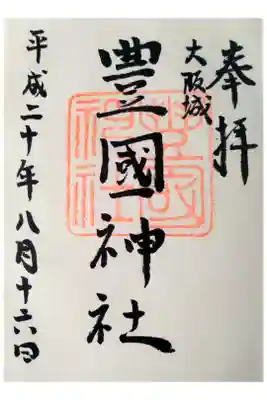 奉拝
大阪城
豊國神社
平成二十年八月十六日